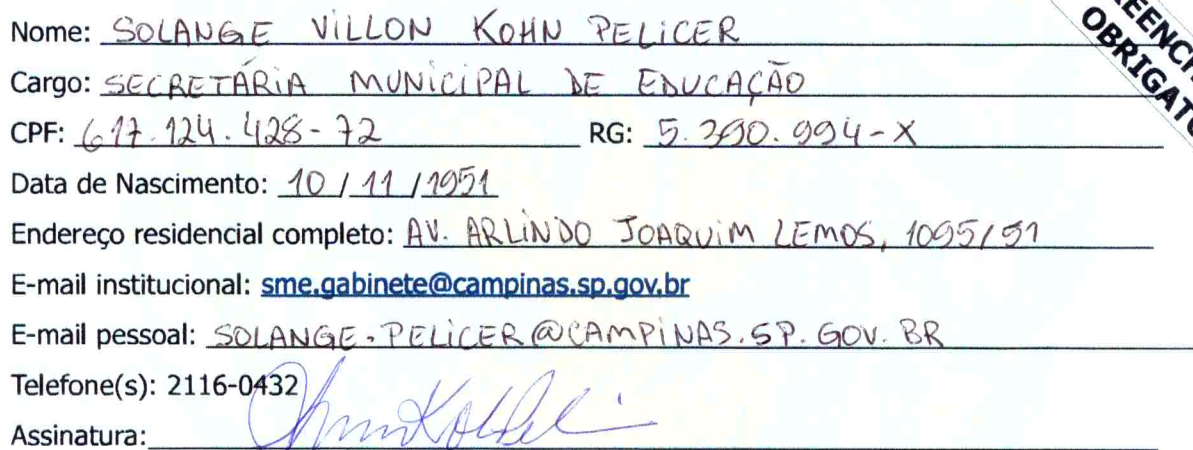 Nome: SOLANGE VILLON KOHN PELICER
Cargo: SECRETÁRIA MUNICIPAL DE EDUCAÇÃO
CPF: 617.124.428-72 RG: 5.390.994-X
Data de Nascimento: 10 / 11 / 1951
Endereço residencial completo: AV. ARLINDO JOAQUIM LEMOS, 1095/91
E-mail institucional: sme.gabinete@campinas.sp.gov.br
E-mail pessoal: SOLANGE.PELICER@CAMPINAS.SP.GOV.BR
Telefone(s): 2116-0432
Assinatura: